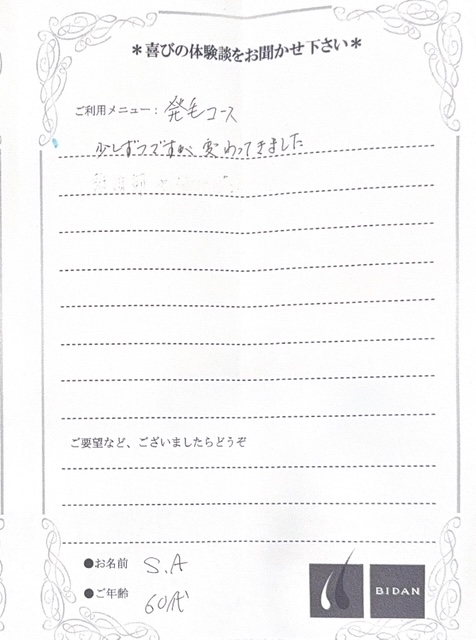 *喜びの体験談をお聞かせ下さい*
ご利用メニュー：発毛コース
少しずつですが、変わってきました
ご要望など、ございましたらどうぞ
●お名前 S.A
●ご年齢 60代
BIDAN